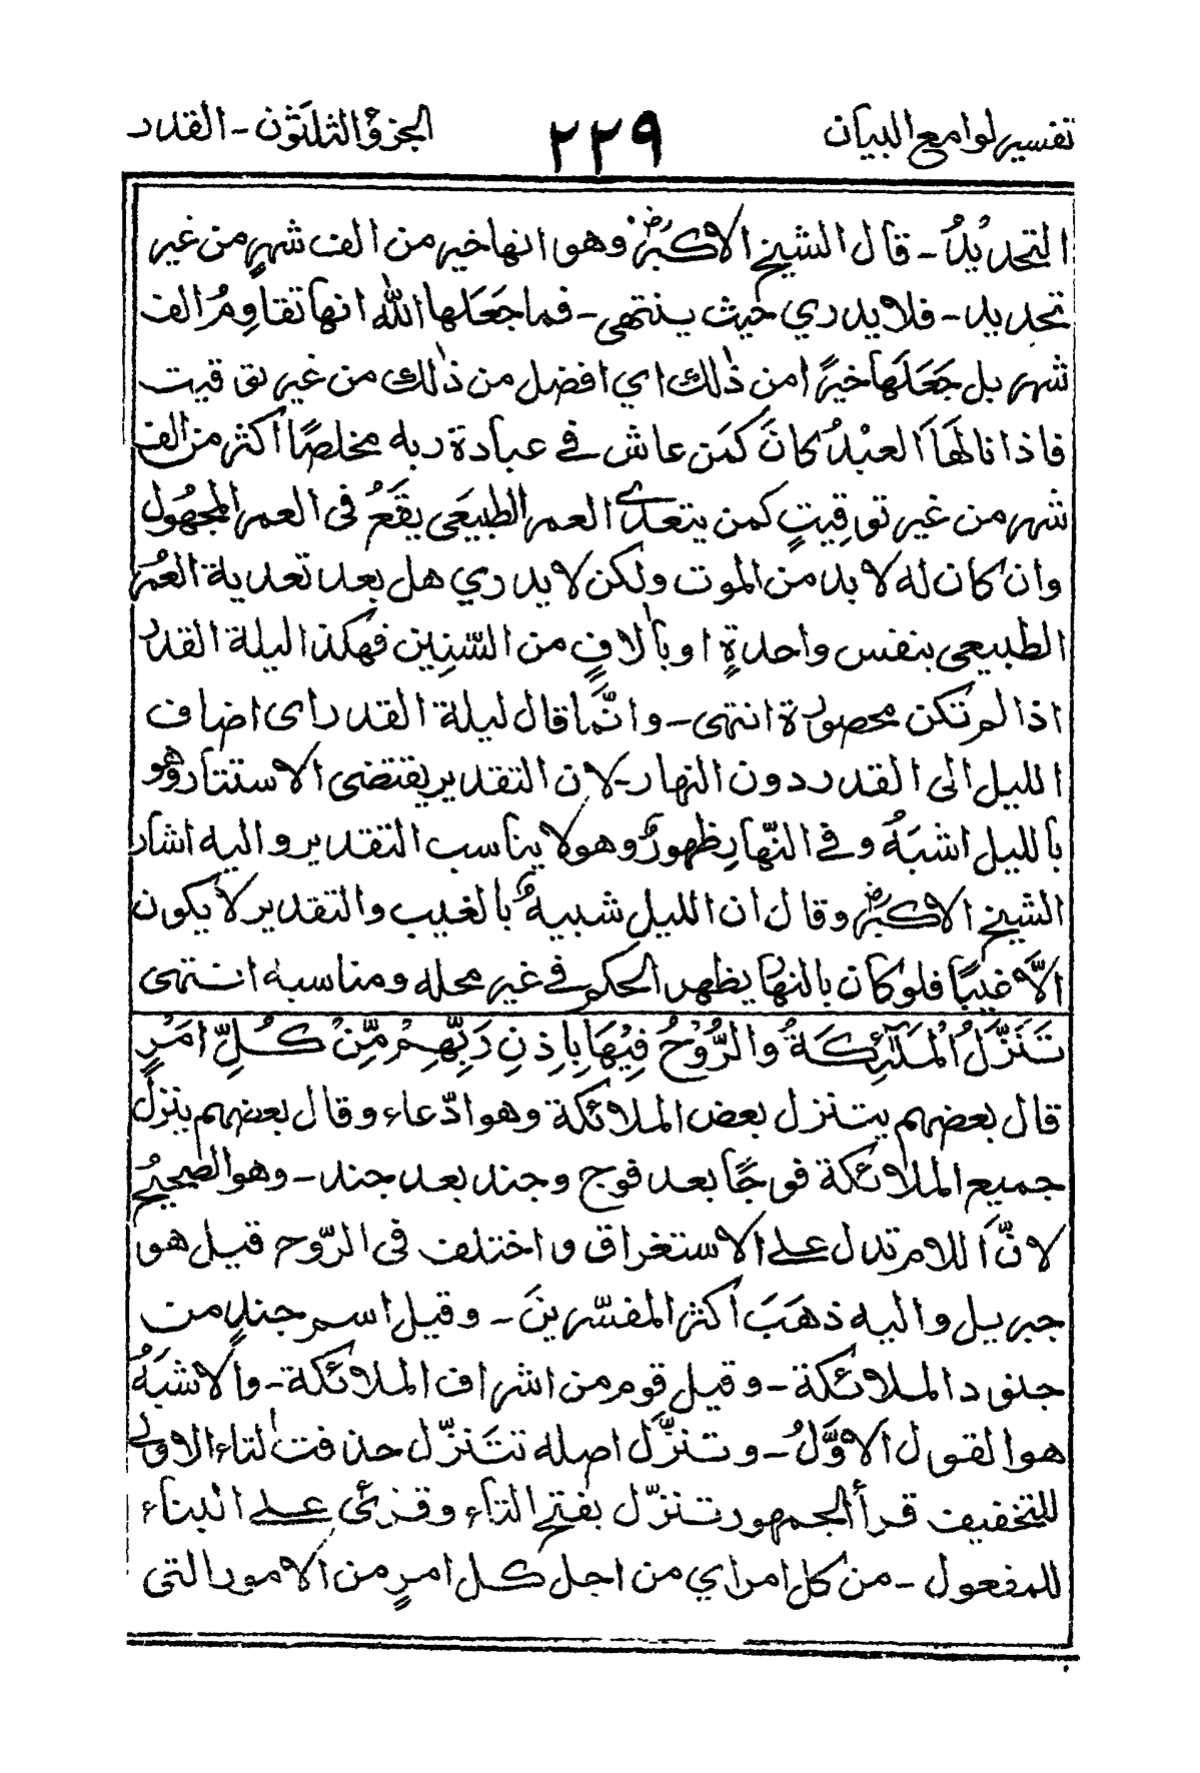 تفسير لوامع البيان ٢٢٩ الجزؤ الثلثون - القدر
التحديدُ - قال الشيخ الاكبرُؓ وهو انها خير من الف شهرٍ من غير
تحديد - فلا يدري حيث ينتهى - فما جعَلها الله انها تقاوِمُ الف
شهر بل جَعَلَها خيرًا من ذٰلك اي افضل من ذٰلك من غير توقيت
فاذا نالهَا العبْدُ كانَ كمَن عاش في عبادة ربه مخلصًا أكثر من الف
شهر من غير توقِيتٍ كمن يتعدّى العمر الطبيعَى يقَعُ فى العمر المجهُول
وان كان له لا بد من الموت ولكن لا يدري هل بعد تعدية العُمر
الطبيعى بنفس واحدةٍ او بآلافٍ من السّنِين فهكذا ليلة القدر
اذا لم تكن محصورة انتهى - وانّما قال ليلة القدر اى اضاف
الليل الى القدر دون النهار - لان التقدير يقتضى الاستتار وهُو
بالليل اشبَهُ وفي النّهارِ ظهورٌ وهو لا يناسب التقدير واليه اشار
الشيخ الاكبرؓ وقال ان الليل شبيهٌ بالغيب والتقدير لا يكون
الّا غيبًا فلو كان بالنهار يظهر الحكم في غير محله ومناسبه انتهى
تَنَزَّلُ الْمَلٰٓئِكَةُ والرُّوْحُ فِيْهَا بِاِذنِ رَبِّهِمْ مِّنْ كُلِّ امْرٍ
قال بعضهم يتنزل بعض الملائكة وهو ادّعاء وقال بعضهم ينزل
جميع الملائكة فوجًا بعد فوج وجند بعد جند - وهو الصحيحُ
لانّ اللام تدل على الاستغراق واختلف فى الرّوح قيل هو
جبريل واليه ذهَبَ أكثر المفسّرينَ - وقيل اسم جندٍ من
جنود الملائكة - وقيل قوم من اشراف الملائكة - والاشبَهُ
هو القول الاوّلُ - وتنزَّل اصله تتَنزّل حذفت التاء الاولى
للتخفيف قرأ الجمهور تنزّل بفتح التاء وقرئ على البناء
للمفعول - من كل امر اي من اجل كل امرٍ من الامور التى